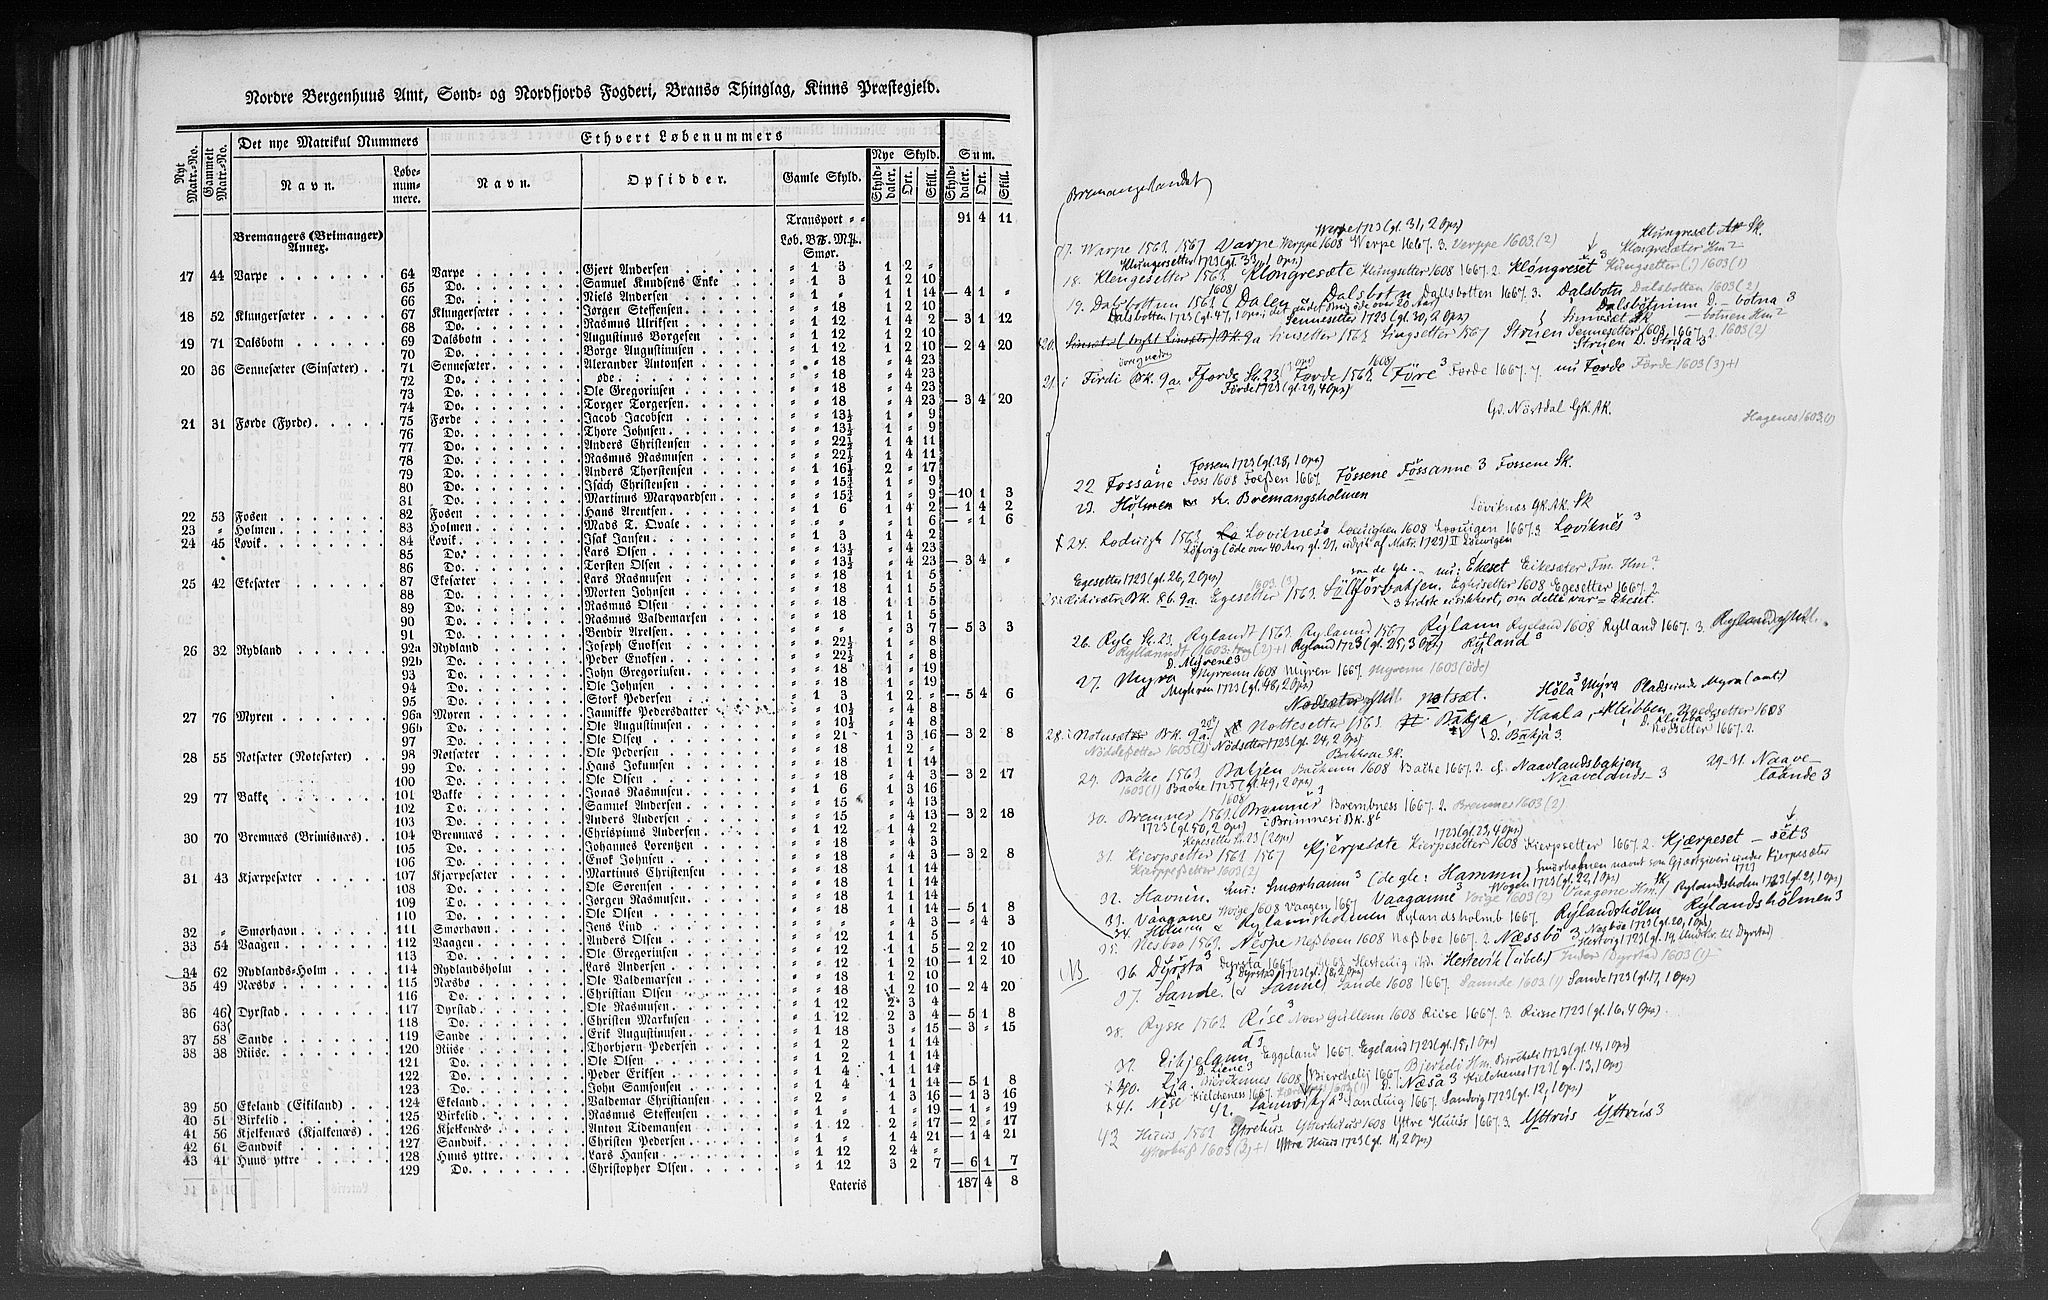 Nordre Bergenhuus Amt, Sønd- og Nordfjords Fogderi, Bransø Thinglag, Kinns Præstegjeld.
Nyt Matr.-No.
Gammelt Matr.-No.
Det nye Matrikul Nummers
Ethvert Løbenummers
Navn.
Løbe-nummere.
Navn.
Opsidder.
Gamle Skyld.
Nye Skyld.
Skylddaler.
Ort.
Skill.
Sum.
Skylddaler.
Ort.
Skill.
Transport " " 91 4 11
Bremangers (Brimanger) Annex.
Løb. Bp. Mpl. Smør.
17 44 Varpe 64 Varpe Gjert Andersen " 1 3 1 2 "
65 Do. Samuel Knudsens Enke " 1 3 1 2 10
66 Do. Niels Andersen " 1 " 1 1 14 — 4 1 "
18 52 Klungersæter 67 Klungersæter Jørgen Steffensen " " 18 1 2 10
68 Do. Rasmus Ulriksen " 1 12 1 4 2 — 3 1 12
19 71 Dalsbotn 69 Dalsbotn Augustinus Borgesen " 1 12 1 2 10
70 Do. Borge Augustinusen " 1 12 1 2 10 — 2 4 20
20 36 Sennesæter (Sinsæter) 71 Sennesæter Alexander Antonsen " " 18 " 4 23
72 Do. øde " " 18 " 4 23
73 Do. Ole Gregoriusen " " 18 " 4 23
74 Do. Torger Torgersen " " 18 " 4 23 — 3 4 20
21 31 Førde (Fyrde) 75 Førde Jacob Jacobsen " " 13½ " " 9
76 Do. Thore Johnsen " " 13½ " " 9
77 Do. Anders Christensen " " 22½ 1 4 11
78 Do. Rasmus Rasmusen " " 22½ 1 4 11
79 Do. Anders Thorstensen " 1 16½ 2 " 17
80 Do. Isach Christensen " " 15¾ " " 9
81 Do. Martinus Marqvardsen " " 15¾ " " 9 — 10 1 3
22 53 Fosen 82 Fosen Hans Arentsen " 1 6 1 4 2 — 1 4 2
23 " Holmen 83 Holmen Mads T. Ovale " " " " 1 6 — " 1 6
24 45 Løvik 84 Løvik Isak Jansen " 1 3 1 4 2
85 Do. Lars Olsen " " 13½ " 4 23
86 Do. Torsten Olsen " " 13½ " 4 23 — 3 4 "
25 42 Ekesæter 87 Ekesæter Lars Rasmusen " " 18 1 1 5
88 Do. Morten Johnsen " " 18 1 1 5
89 Do. Rasmus Olsen " " 18 1 1 5
90 Do. Rasmus Valdemarsen " " 18 1 1 5
91 Do. Bendix Axelsen " " " " 3 7 — 5 3 3
26 32 Rydland 92a Rydland Joseph Enoksen " " 22½ 1 " 8
92b Do. Peder Enoksen " " 22½ 1 " 8
93 Do. John Gregoriusen " " 18 1 " 19
94 Do. Ole Johnsen " " 18 1 " 19
95 Do. Stork Pedersen " 1 3 1 2 " — 5 4 6
27 76 Myren 96a Myren Jannikke Pedersdatter " " 10½ " 4 8
96b Do. Ole Augustinusen " " 10½ " 4 8
97 Do. Ole Olsen " " 21 1 3 16 — 3 2 8
28 55 Notsæter (Notesæter) 98 Notsæter Ole Pedersen " " 18 1 2 "
99 Do. Hans Jokumsen " " 18 1 1 14
100 Do. Ole Olsen " " 18 " 4 3 — 3 2 17
29 77 Bakke 101 Bakke Jonas Rasmusen " 1 6 1 3 16
102 Do. Samuel Andersen " " 15 " 4 13
103 Do. Anders Andersen " " 15 " 4 13 — 3 2 18
30 70 Bremnæs (Brimisnæs) 104 Bremnæs Chrispinus Andersen " 1 12 1 4 2
105 Do. Johannes Lorentzen " " 18 " 4 3
106 Do. Enok Johnsen " " 18 " 4 3 — 3 2 8
31 43 Kjærpesæter 107 Kjærpesæter Martinus Christensen " " 18 1 1 14
108 Do. Ole Sørensen " " 18 1 1 14
109 Do. Jørgen Rasmusen " " 18 1 1 14
110 Do. Ole Olsen " " 18 1 1 14 — 5 1 8
32 " Smørhavn 111 Smørhavn Jens Lind " " " " 4 3 — " 4 3
33 54 Vaagen 112 Vaagen Anders Olsen " " 12 1 1 5
113 Do. Ole Gregoriusen " " 12 1 1 5 — 2 2 10
34 62 Rydlands-Holm 114 Rydlandsholm Lars Andersen " " 12 1 2 10 — 1 2 10
35 49 Næsbø 115 Næsbø Ole Valdemarsen " " 18 1 2 10
116 Do. Christian Olsen " " 18 1 2 10 — 2 4 20
36 46 63 Dyrstad 117 Dyrstad Ole Rasmusen " 1 12 2 3 4
118 Do. Christen Markusen " 1 12 2 3 4 — 5 1 8
37 58 Sande 119 Sande Erik Augustinusen " 1 18 3 " 15 — 3 " 15
38 38 Riise 120 Riise Thorbjørn Pedersen " 1 2 1 1 14
121 Do. Ole Olsen " 1 2 1 1 14
122 Do. Peder Eriksen " 1 4 1 1 14
123 Do. John Samsonsen " 1 4 1 1 14 — 5 1 8
39 50 Ekeland (Eikiland) 124 Ekeland Valdemar Christiansen " 2 " 1 3 16 — 1 3 16
40 51 Birkelid 125 Birkelid Rasmus Steffensen " 1 " 1 " 19 — 1 " 19
41 56 Kjelkenæs (Kjalkenæs) 126 Kjelkenæs Anton Tidemansen " 1 12 2 " 17 — 2 " 17
42 61 Sandvik 127 Sandvik Christen Pedersen " 1 " 1 4 21 — 1 4 21
43 41 Huus yttre 128 Huus yttre Lars Hansen " 1 12 2 4 "
129 Do. Christopher Olsen " 1 12 3 2 7 — 6 1 7
Lateris 187 4 8
Bremangerlandet
Werpe 1723 (gl. 31, 2 Ops)
17. Warpe 1563, 1567 Varpe Werppe 1608 Werpe 1667. 3. Verppe 1603. (2)
Klungreset AK Sk.
Klungersetter 1723 (gl. 33, 1 Ops.)
Klongresæter Hm 2
18. Klengesetter 1563 Klongresæte Klungsetter 1608 1667. 2. Klongreset 3 Klungsetter 1603 (1)
19. Dalsbottum 1563 (1608) Dalen Dalsbotn Dallsbotten 1667. 3. Dalsbotn Dalsbotten 1603 (2)
Dalsbotten 1723 (gl. 47, 1 Ops
Dalsbotninn D. – botna 3
Sennesetter 1723 (gl. 30, 2 Ops)
– botnen Hm 2
20. BK. 9a Sinsetter 1563 Singsetter 1567 Struen Sennesetter 1608, 1667. 2. 1603 (2)
Struen D. Strua 3
21. i Firdi BK. 9a. Fjorde St. 23 Forde 1563 1608 Före 3 Førde 1667. 7. nu Førde Førde 1603 (3) +1
Førde 1723 (gl. 29, 4 Ops)
Gd. Nöstdal GK. AK.
Hagenes 1603 (1)
Fossem 1723 (gl. 28, 1 Ops)
22 Fossåne Foss 1608 Foessen 1667. Fössene Fössanne 3 Fossene Sk.
23. Hölmen Bremangsholmen
Löviknæs GK. AK. Sk
24. Lodvigh 1563 Lovikness Louighen 1608 Louigen 1667. 3. Loviknes 3
Løfvig (öde over 40 Aar, gl. 27, udgik af Matr. 1723) II Løevigen
Egesetter 1723 (gl. 26, 2 Ops)
1603. (3)
nu: Ekeset Eikesæter Fm. Hm?
BK. 8b. 9a. Egesetter 1563. Sülförbakjen. Eghisetter 1608 Egesetter 1667. 2.
3 vidste ei sikkert, om dette var = Ekeset.
26. Ryle St. 23. Rylandt 1563 Rylannd 1567 Rylann Ryeland 1608 Rylland 1667. 3.
Ryllanndt 1603 (2) +1 Ryland 1723 (gl. 25, 3 Ops) Ryland 3
D. Myrene 3
27. Myra Myrenn 1608 Myren 1667. Myrenn 1603 (öde)
Myhren 1723 (gl. 48, 2 Ops)
Höla 3 Myra Pladseinde Myra (amt.)
Notsæt.
28. i Notusætr BK. 9a. Nottesetter 1563 Bakje, Haala, Klubben, Noedsetter 1608
Nöddesetter 1603 (2) Nödsetter 1723 (gl. 24, 2 Ops)
D. Bakja 3.
D. Klubba 3
Nödsetter 1667. 2.
Bakkenn Sk.
29. Backe 1563. Bakjen Backenn 1608 Backe 1667. 2. cf. Naavlandsbakjen
Naavelands – 3
29–31. Naave–laande 3
1603 (1) Backe 1723 (gl. 49, 2 Ops)
30. Bremnes 1563. 1608 Bremnes 3 Brembness 1667. 2. Bremnes 1603 (2)
1723 (gl. 50, 2 Ops) i Brimnesi BK. 8b
1723 (gl. 23, 4 Ops)
31. Kierpsetter 1563 1567 Kjerpesæte Kierpesetter 1608 Kierpsetter 1667. 2. Kjærpeset – set 3
Kierppesetter 1603 (2)
32. Havnin. nu: Smørhamn 3 (de gle: Hammn) Smørhafnen nævnt som Gjæstgiveri under Kierpesæter 1723
Wogen 1723 (gl. 22, 1 Ops)
33. Vaagane Woige 1608 Vaagen 1667 Vaaganne 3 Voige 1603 (2) Vaagene Hm.
Rylandsholm 1723 (gl. 21, 1 Ops)
34. Holmen Rylannsholmenn Rylandsholmb 1667. Rylandsholm Rylandshölmen 3
35. Nesboe 1563. Nespe Nesboen 1608 Nessboe 1667. 2 Næssbö 3 Næsbøe 1723 (gl. 20, 1 Ops)
Hestvig 1723 (gl. 19, under. til Dyrstad)
NB
36. Dyrsta 3 Dyrsta 1667 Hestevik (ubeb.) Dyrstad 1603 (1)
Dyrstad 1723 (gl. 18, 2 Ops)
37. Sande. Sanne) Sande 1608 1667. Sannde 1603. (1) Sande 1723 (gl. 17, 1 Ops)
38. Rysse 1563 Rise 3 1608 Riise 1667. 3. Riise 1723 (gl. 16, 4 Ops)
39. Eikjelann d 3 Eggeland 1667. Egeland 1723 (gl. 15, 1 Ops)
D. Liene 3
40. Lia. Birckenes 1608 Bierchelij 1667 Bjerkeli Hm. Birckeli 1723 (gl. 14, 1 Ops)
41. Nese Kielcheness 1667. D. Næsa 3 Kielchenes 1723 (gl. 13, 1 Ops)
42. Sannvikja 3 Sanduig 1667. Sandvig 1723 (gl. 12, 1 Ops)
43 Huus 1563 Ytrehus Ytterhuus 1608 Yttre Huuss 1667. 3. Yttrus Yttrus 3
Ytterhuss 1603 (3) +1 Yttre Huus 1723 (gl. 11, 2 Ops)